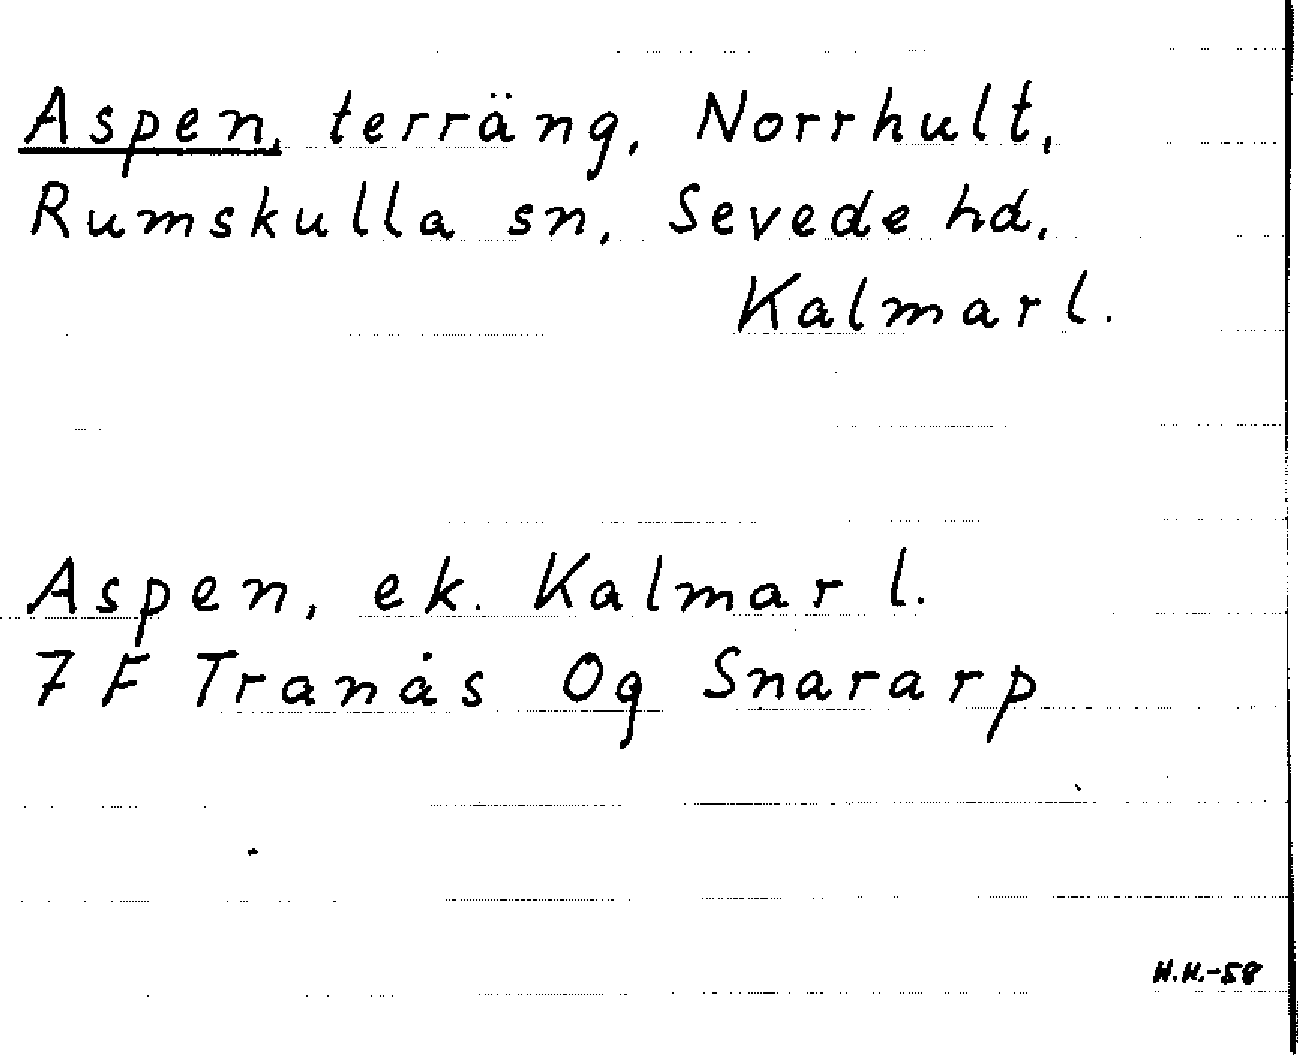 Aspen, terräng, Norrhult,
Rumskulla sn, Sevede hd,
Kalmar l.
Aspen, ek. Kalmar l.
7 F Tranås Og Snararp
H.H.-58